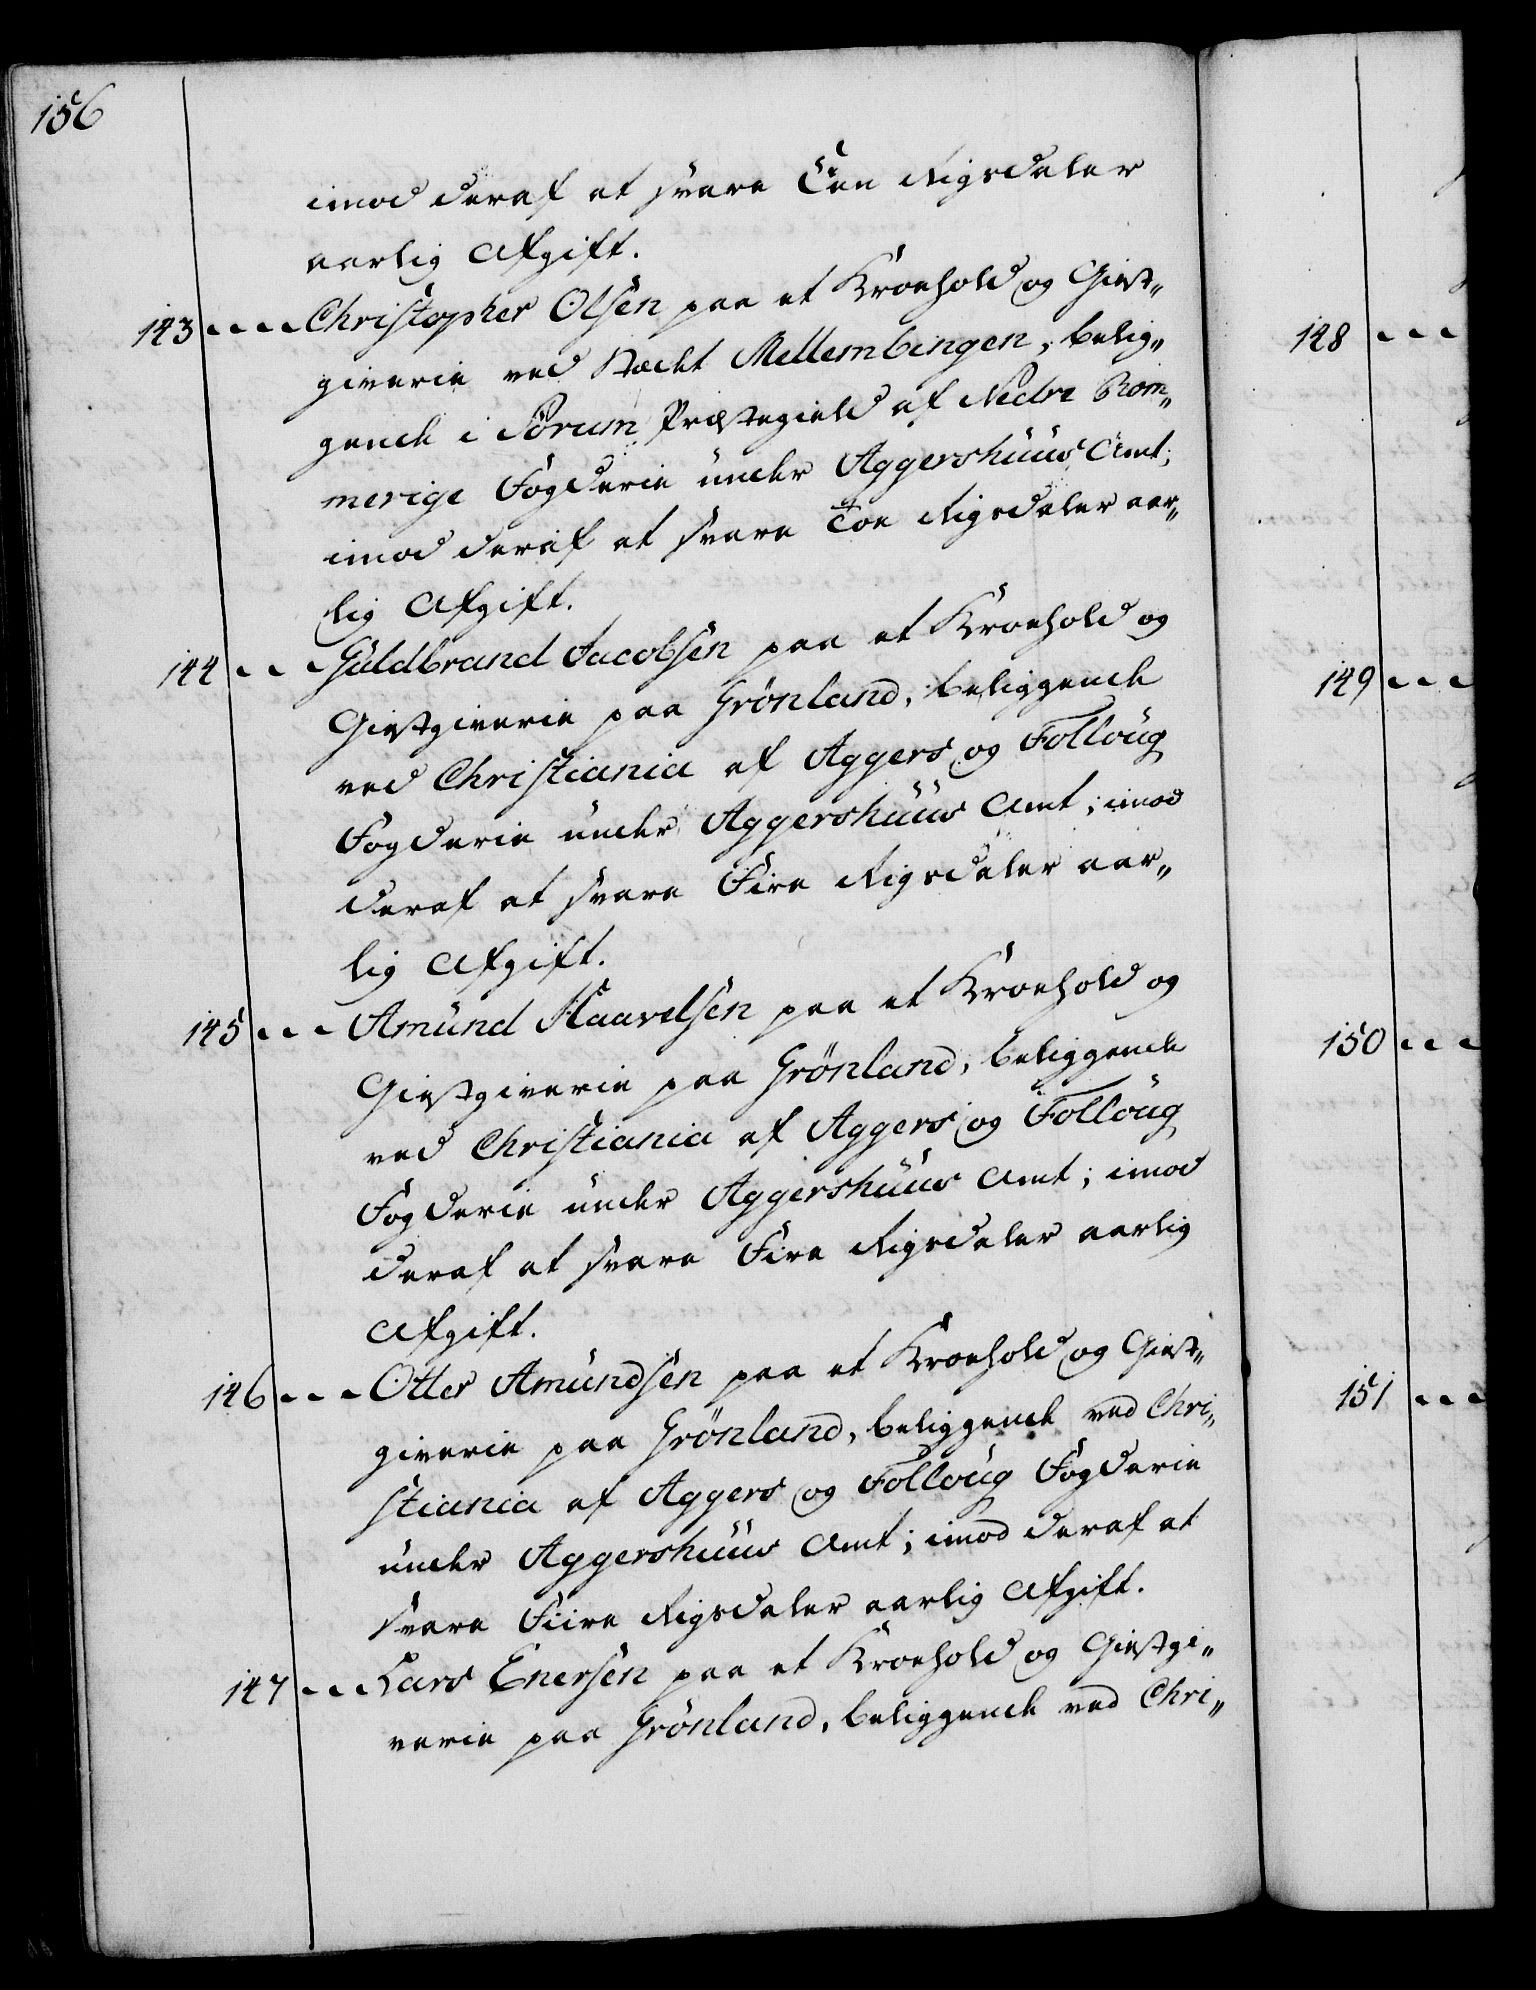 156
imod deraf at svare Een Rigsdaler
aarlig Afgift.
143 - - - - Christopher Olsen paa et Kroehold og Giest„
giverie ved Stædet Mellembingen, belig„
gende i Sørum Præstegield af Nedre Rom„
merige Fogderie under Aggershuus Amt;
imod deraf at svare Toe Rigsdaler aar„
lig Afgift.
144 - - Guldbrand Jacobsen paa et Kroehold og
Giestgiverie paa Grönland, beliggende
ved Christiania af Aggers og Folloug
Fogderie under Aggershuus Amt; imod
deraf at svare Fire Rigsdaler aar„
lig Afgift.
145 - - - Amund Haavelsen paa et Kroehold og
Giestgiverie paa Grönland, beliggende
ved Christiania af Aggers og Folloug
Fogderie under Aggershuus Amt; imod
deraf at svare Fire Rigsdaler aarlig
Afgift.
146 - - - Otter Amundsen paa et Kroehold og Giest„
giverie paa Grönland, beliggende ved Chri„
stiania af Aggers og Folloug Fogderie
under Aggershuus Amt; imod deraf at
svare Fiire Rigsdaler aarlig Afgift.
147 - - - Lars Enersen paa et Kroehold og Giestgi„
verie paa Grönland, beliggende ved Chri„
148 - - -
149 - - -
150 - - -
151 - - -